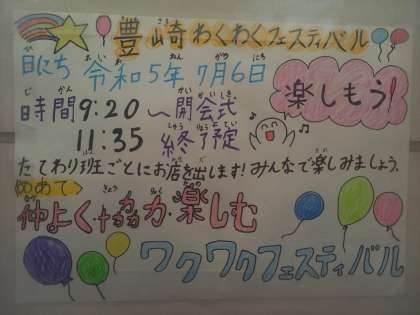 豊崎わくわくフェスティバル
日にち 令和5年7月6日
時間9:20~開会式
楽しもう!
11:35 終了予定
たてわり班ごとにお店を出します!みんなで楽しみましょう。
めあて
仲よく・協力・楽しむ
ワクワクフェスティバル